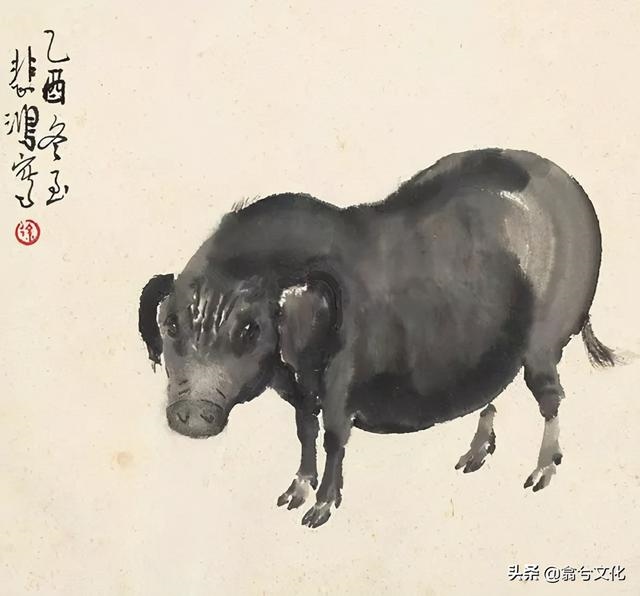 乙酉冬至
悲鸿写
徐
头条 @翕兮文化